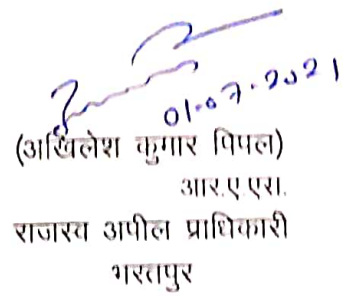 01.07.2021
(अखिलेश कुमार पिपल)
आर.ए.एस.
राजस्व अपील प्राधिकारी
भरतपुर